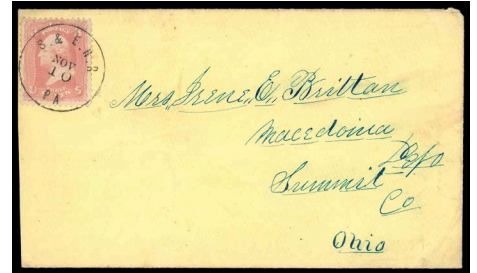 S. & E. R. R
NOV
10
PA
Mrs, Irene, E, Brittan
Macedonia
Depo
Summit
Co
Ohio